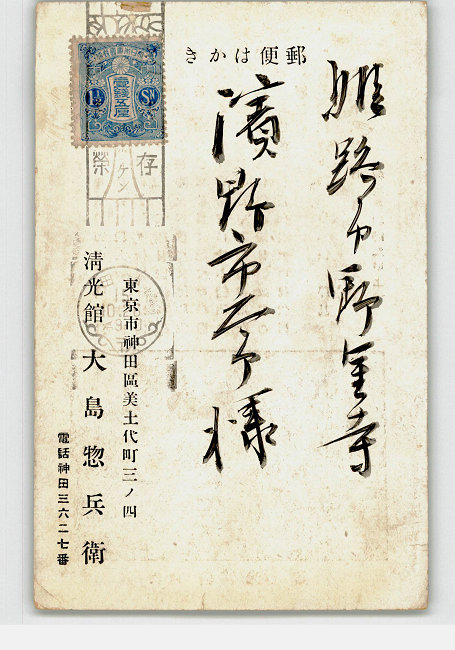 郵便はかき
姫路市野里寺
濱野市 様
東京市神田區美土代町三ノ四
淸光館 大島惣兵衛
電話神田三六二七番
壹錢五厘
1½ Sn